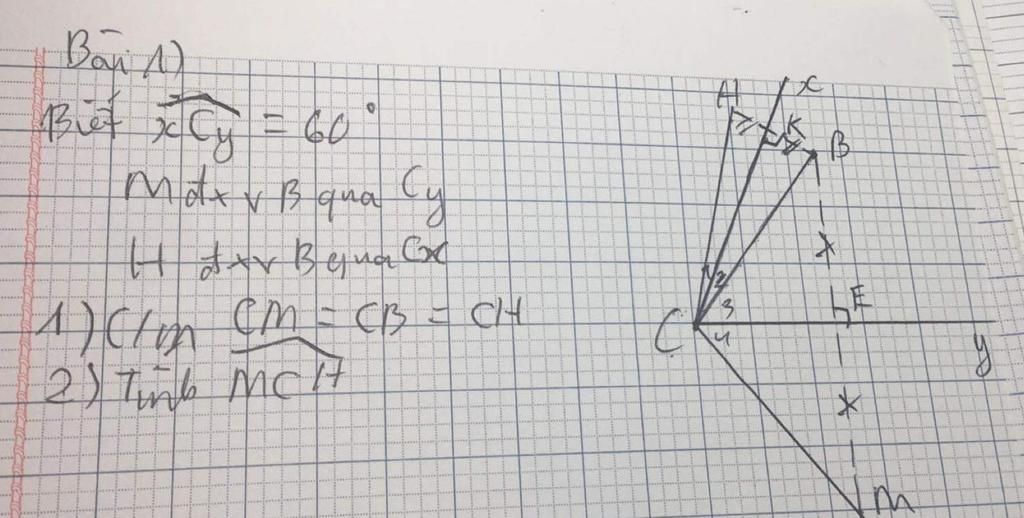 Bài 1)
Biết xCy = 60°
M đx v B qua Cy
H đxv B qua Cx
1) C/m CM = CB = CH
2) Tính MCH
H x
K
B
1 2
3
E
C 4
y
M